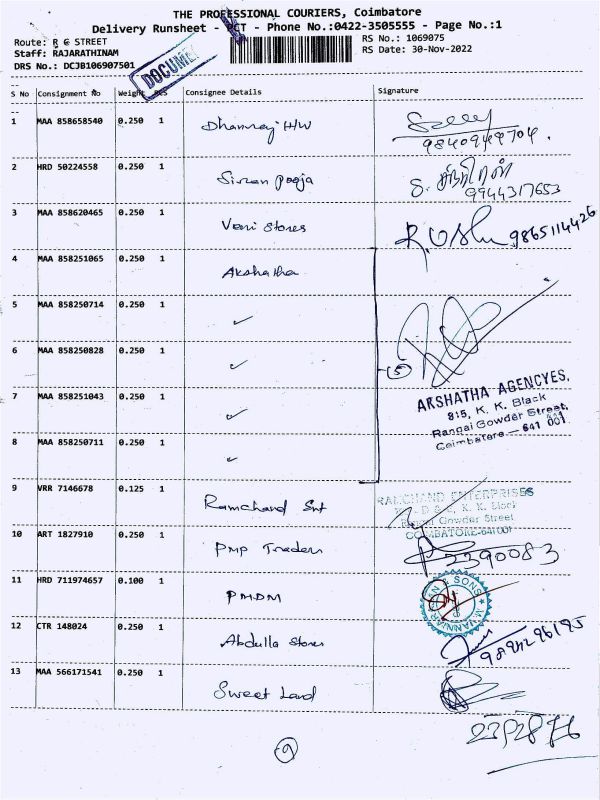 THE PROFESSIONAL COURIERS, Coimbatore
Delivery Runsheet - PCT - Phone No.:0422-3505555 - Page No.:1
Route: R G STREET
RS No.: 1069075
Staff: RAJARATHINAM
RS Date: 30-Nov-2022
DRS No.: DCJB106907501
DOCUME
S No Consignment No Weight PCS Consignee Details Signature
1 MAA 858658540 0.250 1 Dhanraj H/W
9840949704.
2 HRD 50224558 0.250 1 Simran pooja
9944317653
3 MAA 858620465 0.250 1 Vani Stores
R. Usha 9865114426
4 MAA 858251065 0.250 1 Akshatha
5 MAA 858250714 0.250 1 ✓
6 MAA 858250828 0.250 1 ✓
5
7 MAA 858251043 0.250 1 ✓
AKSHATHA AGENCYES,
815, K. K. Block
Rangai Gowder Street,
Coimbatore — 641 001.
8 MAA 858250711 0.250 1 ✓
9 VRR 7146678 0.125 1 Ramchand Ent
RAMCHAND ENTERPRISES
K. K. Block
Rangai Gowder Street
COIMBATORE-641001
10 ART 1827910 0.250 1 PMP Traders
2390083
11 HRD 711974657 0.100 1 PMDM
12 CTR 148024 0.250 1 Abdulla Stores
13 MAA 566171541 0.250 1 Sweet Land
9